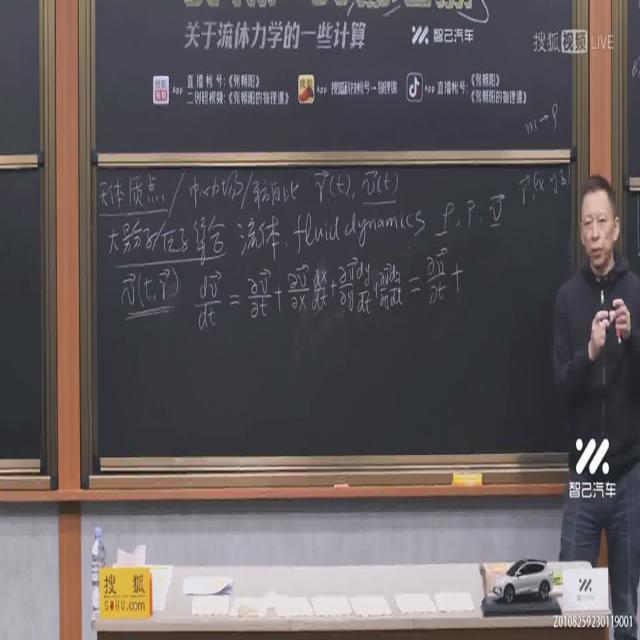 关于流体力学的一些计算
智己汽车
搜狐视频 LIVE
搜狐视频 App 直播帐号：《张朝阳》
二创短视频：《张朝阳的物理课》
App
App 直播帐号：《张朝阳》
《张朝阳的物理课》
m→ρ
天体 质点 / r⃗(t), v⃗(t)
r⃗,(x y z)
流体. fluid dynamics ρ, P, v⃗
v⃗(t, r⃗) dv⃗/dt = ∂v⃗/∂t + ∂v⃗/∂x dx/dt + ∂v⃗/∂y dy/dt + ∂v⃗/∂z dz/dt = ∂v⃗/∂t +
智己汽车
搜狐
SOHU.com
智己汽车
Z0108259230119001